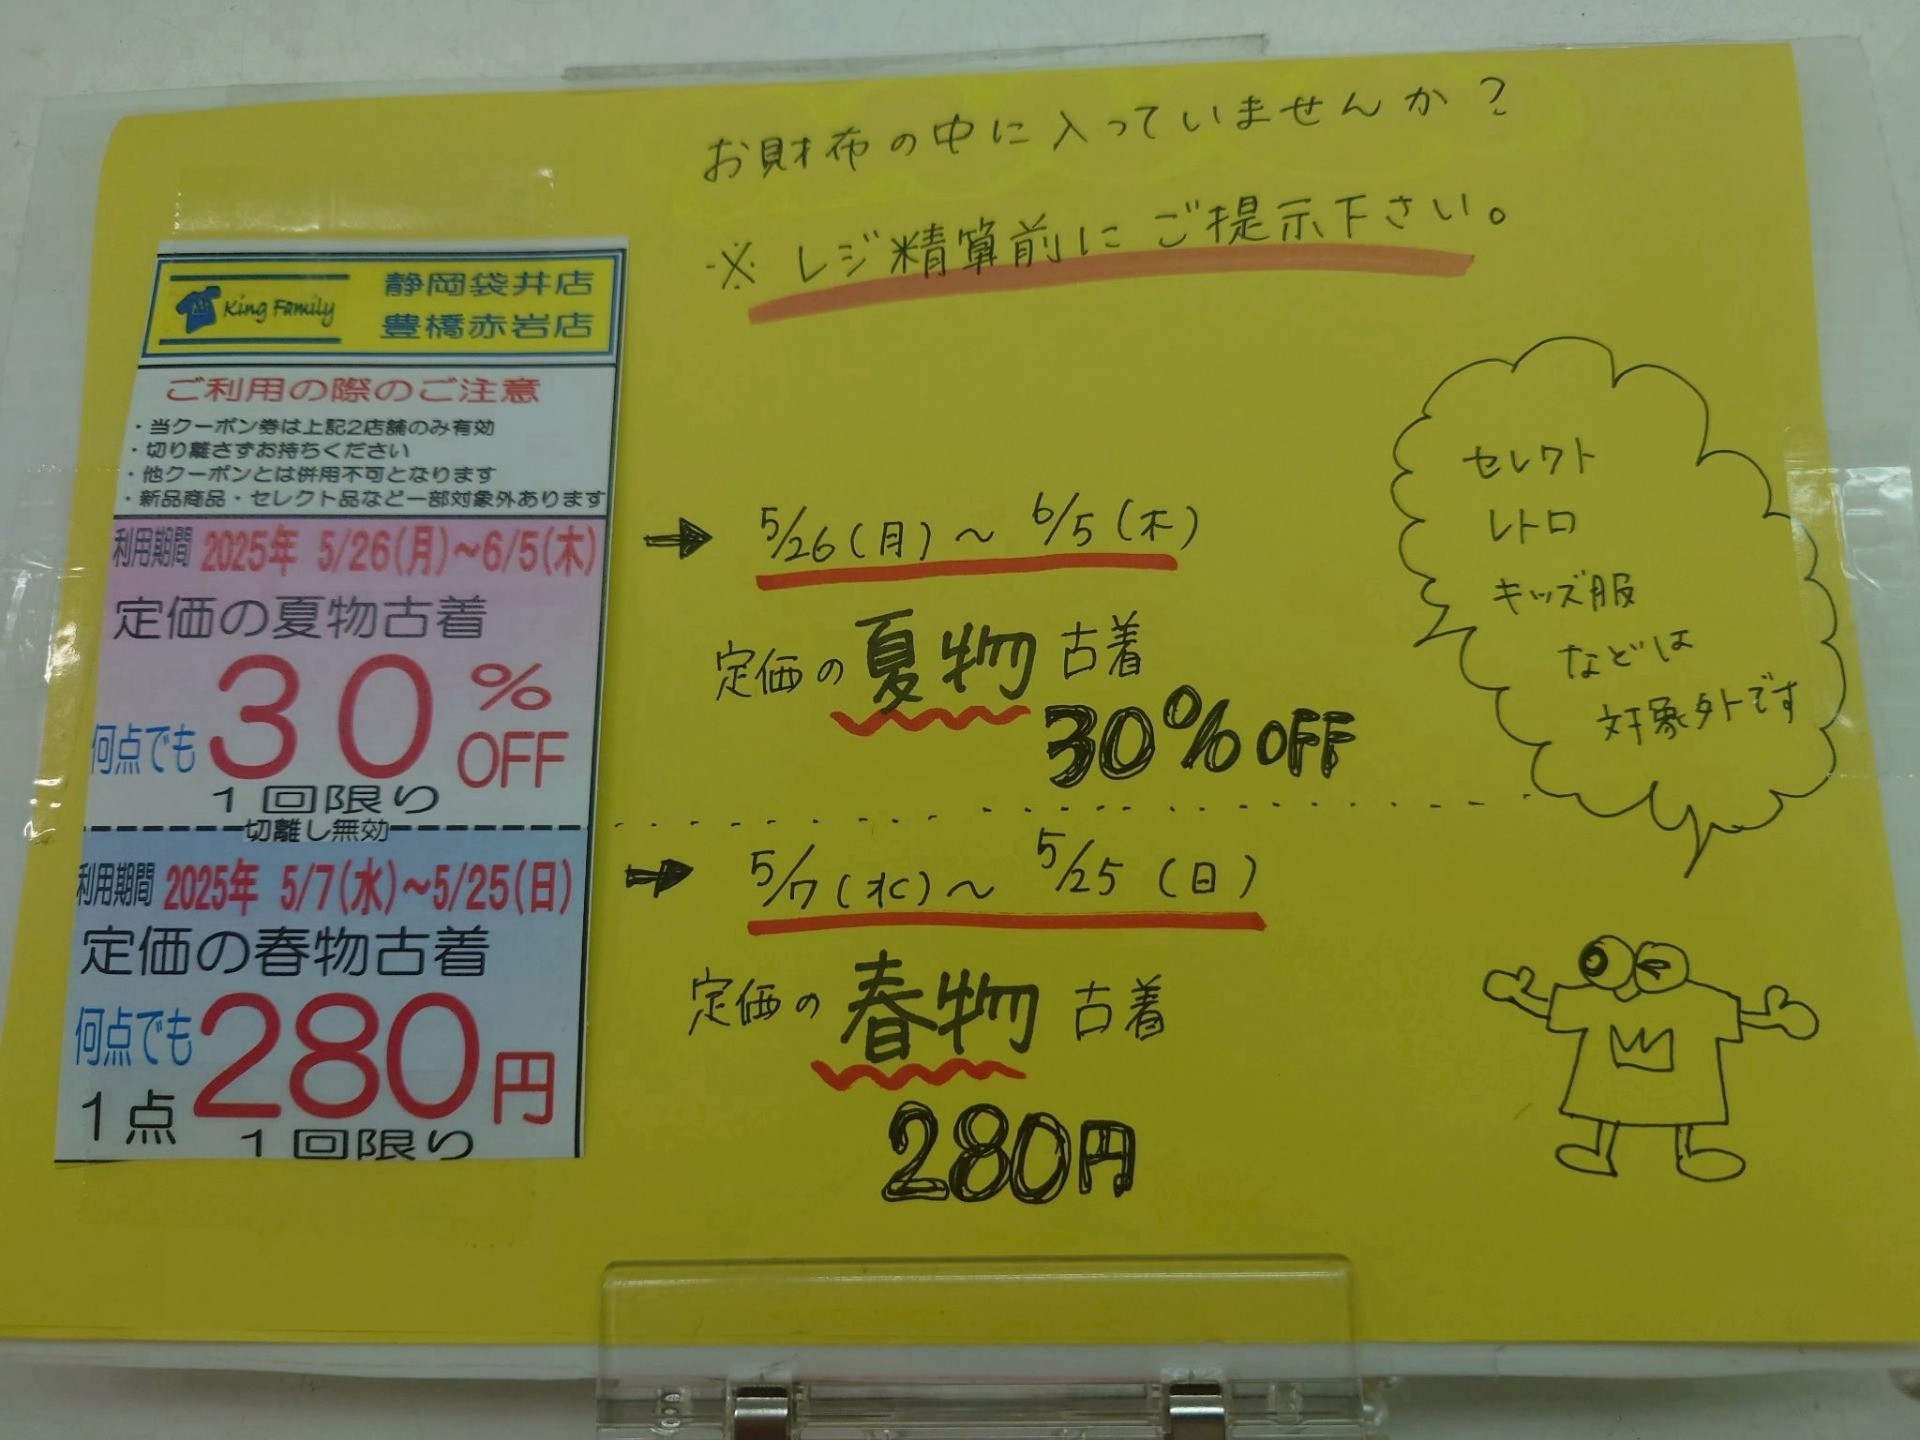 お財布の中に入っていませんか?
※レジ精算前にご提示下さい。
King Family
静岡袋井店
豊橋赤岩店
ご利用の際のご注意
・当クーポン券は上記2店舗のみ有効
・切り離さずお持ちください
・他クーポンとは併用不可となります
・新品商品・セレクト品など一部対象外あります
利用期間 2025年 5/26(月)~6/5(木)
定価の夏物古着
何点でも 30%OFF
1回限り
切離し無効
利用期間 2025年 5/7(水)~5/25(日)
定価の春物古着
何点でも 280円
1点 1回限り
→ 5/26(月)~6/5(木)
定価の夏物古着
30%OFF
→ 5/7(水)~5/25(日)
定価の春物古着
280円
セレクト
レトロ
キッズ服
などは
対象外です